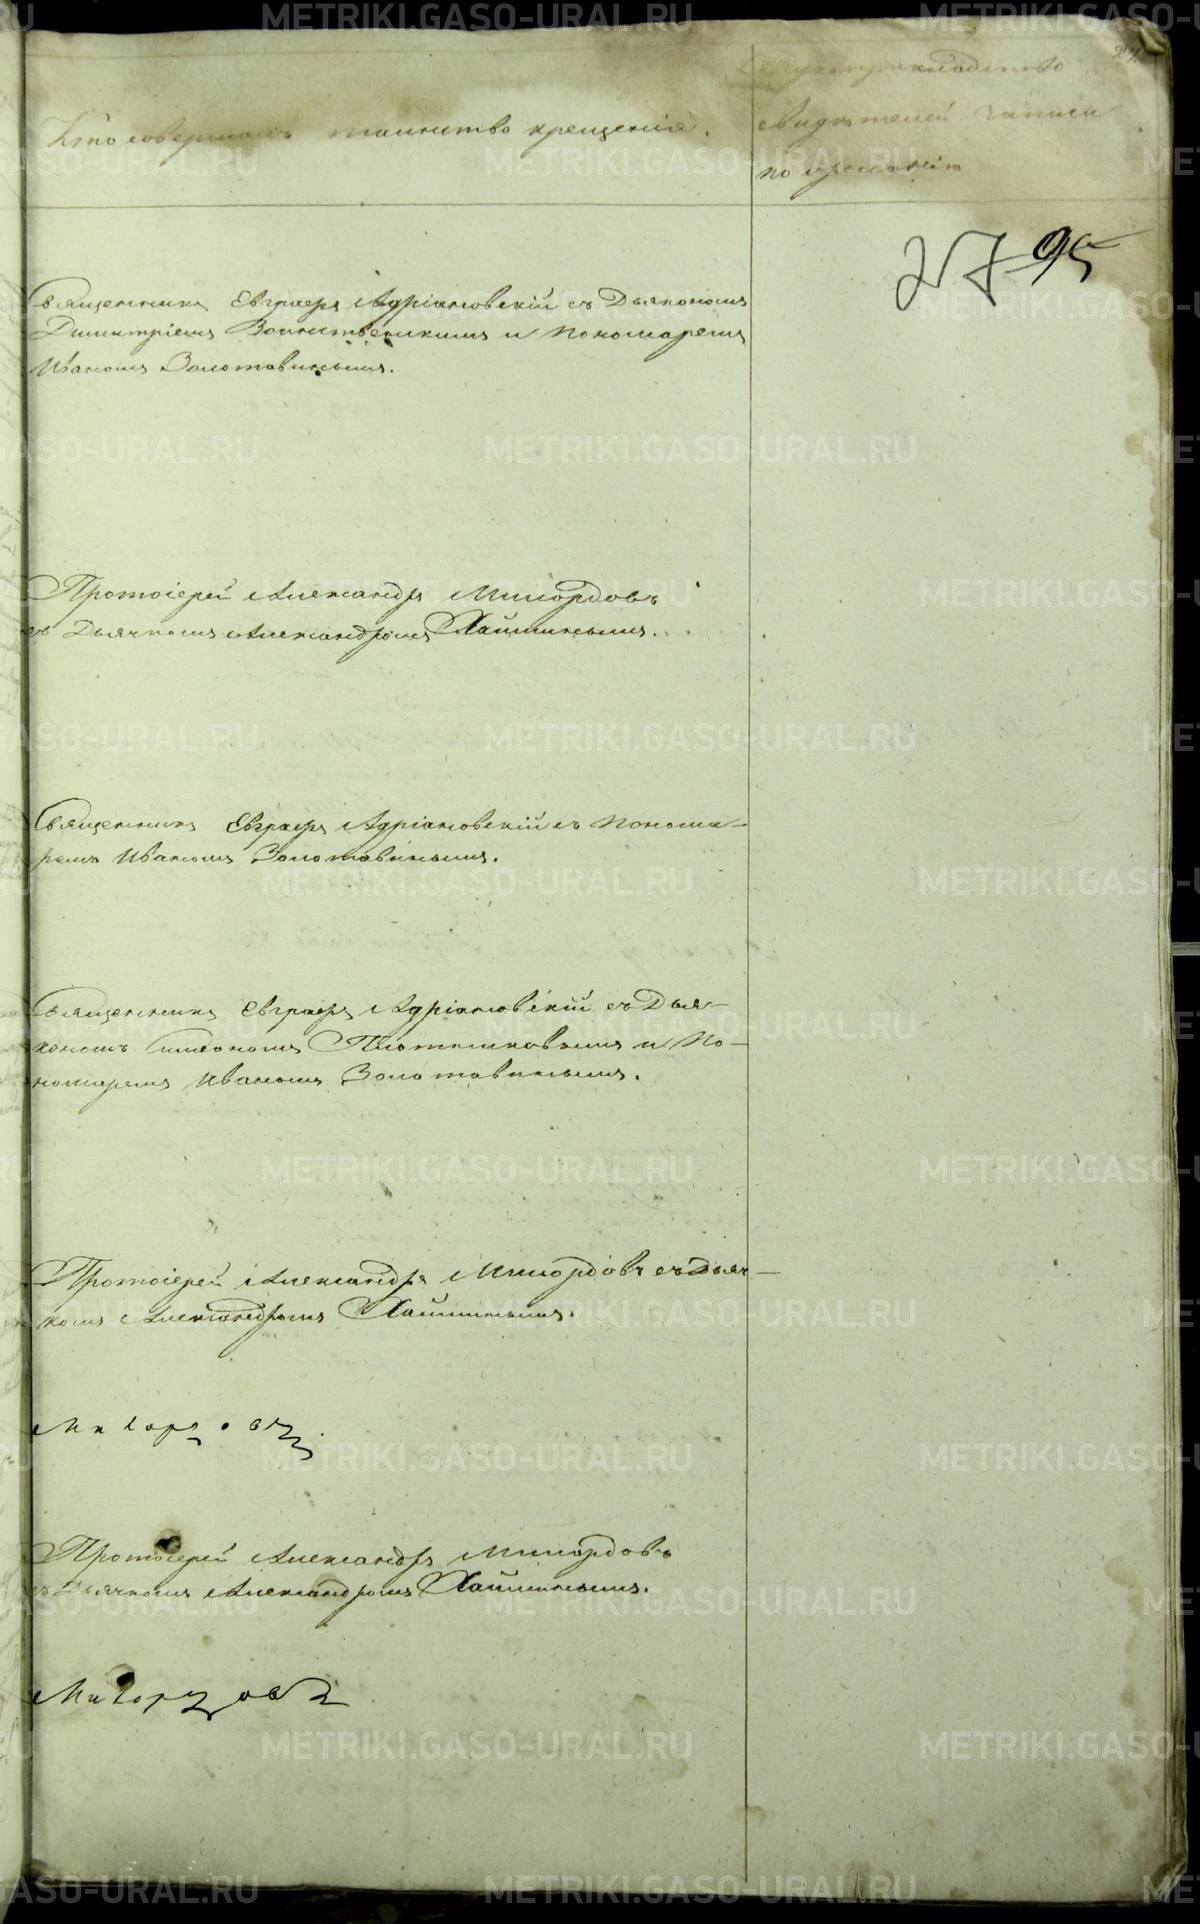 Кто совершалъ таинство крещенія.
Рукоприкладство
свидѣтелей записи
по желанію
27
95
Священникъ Евграфъ Адріановскій съ Дьякономъ
Димитріемъ Воинственскимъ и Пономаремъ
Иваномъ Золотавинымъ.
Протоіерей Александръ Милордовъ
съ Дьячкомъ Александромъ Хайминымъ.
Священникъ Евграфъ Адріановскій съ Понома-
ремъ Иваномъ Золотавинымъ.
Священникъ Евграфъ Адріановскій съ Дья-
кономъ Симеономъ Плотниковымъ и По-
номаремъ Иваномъ Золотавинымъ.
Протоіерей Александръ Милордовъ съ Дьяч-
комъ Александромъ Хайминымъ.
Милордовъ
Протоіерей Александръ Милордовъ
съ Дьячкомъ Александромъ Хайминымъ.
Милордовъ
METRIKI.GASO-URAL.RU